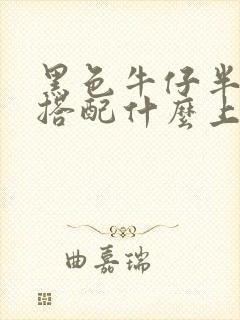 黑色牛仔半
搭配什麼上
曲嘉瑞